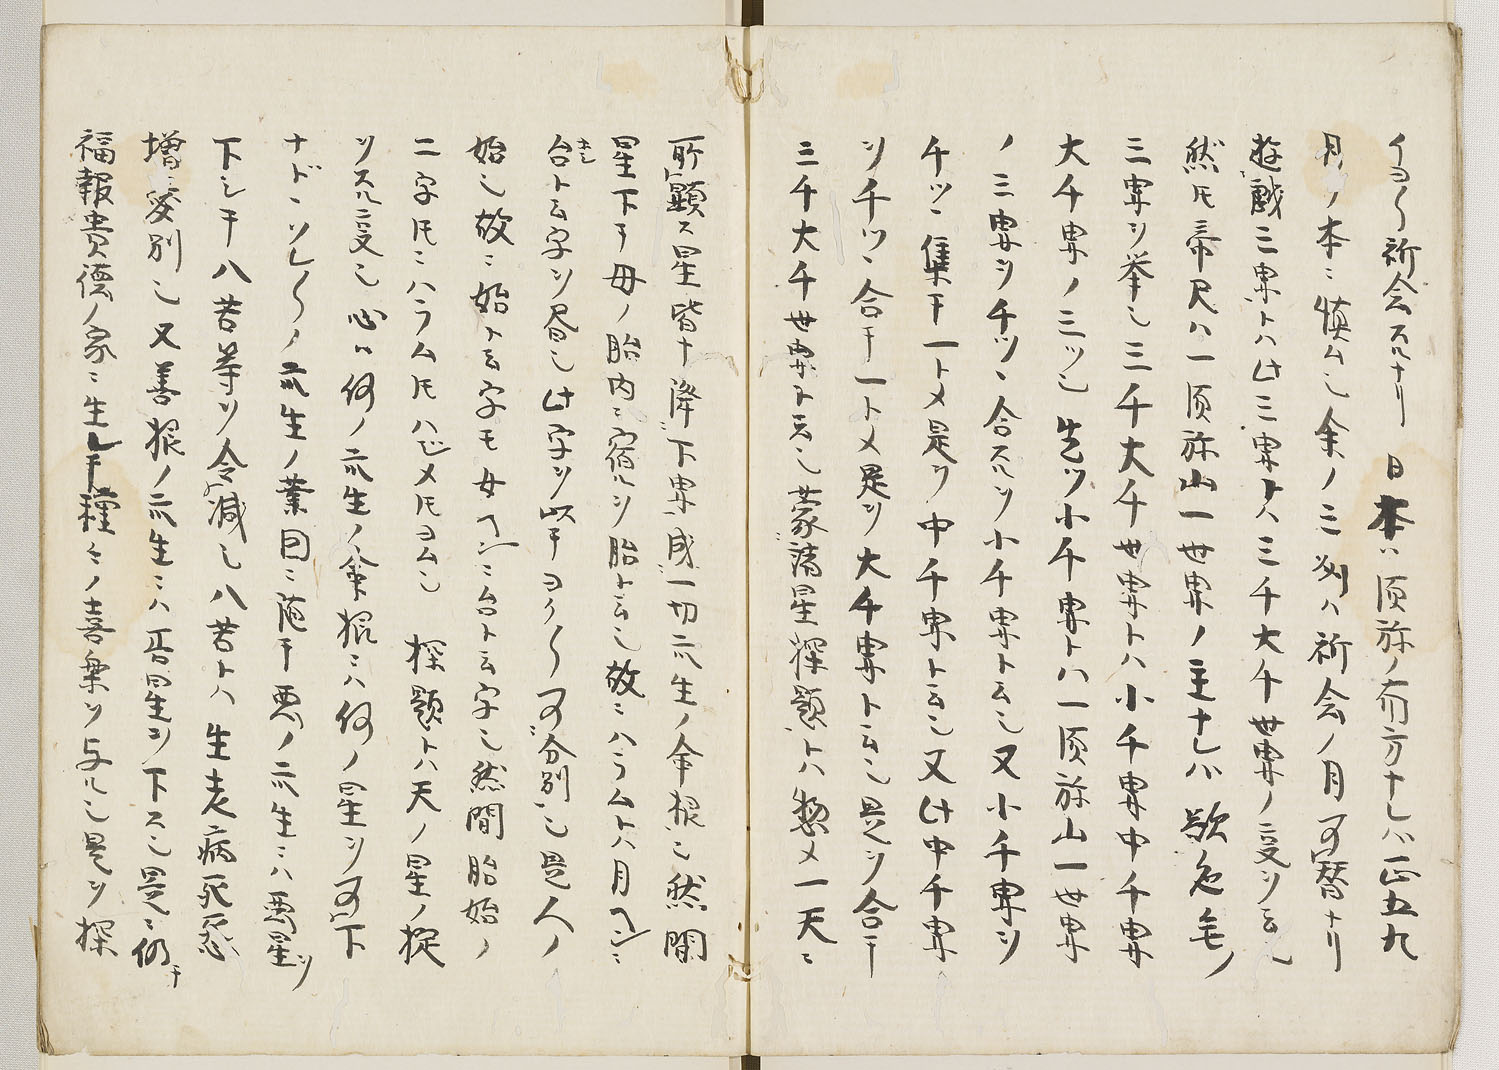 イヨ〱祈念スルナリ 日本ハ須弥ノ南方ナレハ正五九
月ノ本ニ慎ム也余ノ三州ハ祈念ノ月可替ナリ
遊戯三界トハ此三界トハ三千大千世界ノ受ヲ云也
然モ帝尺ハ一須弥山一世界ノ主ナレハ歓喜毛ノ
三界ヲ挙也三千大千世界トハ小千界中千界
大千界ノ三ツ也先ツ小千界トハ一須弥山一世界
ノ三界ヲ千ツヽ合スルヲ小千界ト云也又小千界ヲ
千ツヽ集テ一トメ是ヲ中千界ト云也又此中千界
ヲ千ツヽ合テ一トメ是ヲ大千界ト云也是ヲ合テ
三千大千世界ト云也 蒙満星探題トハ惣メ一天ニ
所顕ス星皆ナ降下界成一切衆生ノ命根也然間
星下テ母ノ胎内ニ宿ルヲ胎ト云也故ニハラムトハ月ヘンニ
台ト云字ヲ書也此字ヲ以テヨク〱可分別也是人ノ
始也故ニ始ト云字モ女ヘンニ台ト云字也然間胎始ノ
二字モニハラムモハシメモヨム也 探題トハ天ノ星ノ掟
ヲスル受也心ハ何ノ衆生ノ命根ニハ何ノ星ヲ可下
ナトヽソレ〱ノ衆生ノ業因ニ随テ悪ノ衆生ニハ悪星ヲ
下シテ八苦等ヲ令減也八苦トハ生老病死忍
増愛別也又善根ノ衆生ニハ吾星ヲ下ス也是ニ仍テ
福報貴徳ノ家ニ生レテ種々ノ喜楽ヲ与ル也是ヲ探